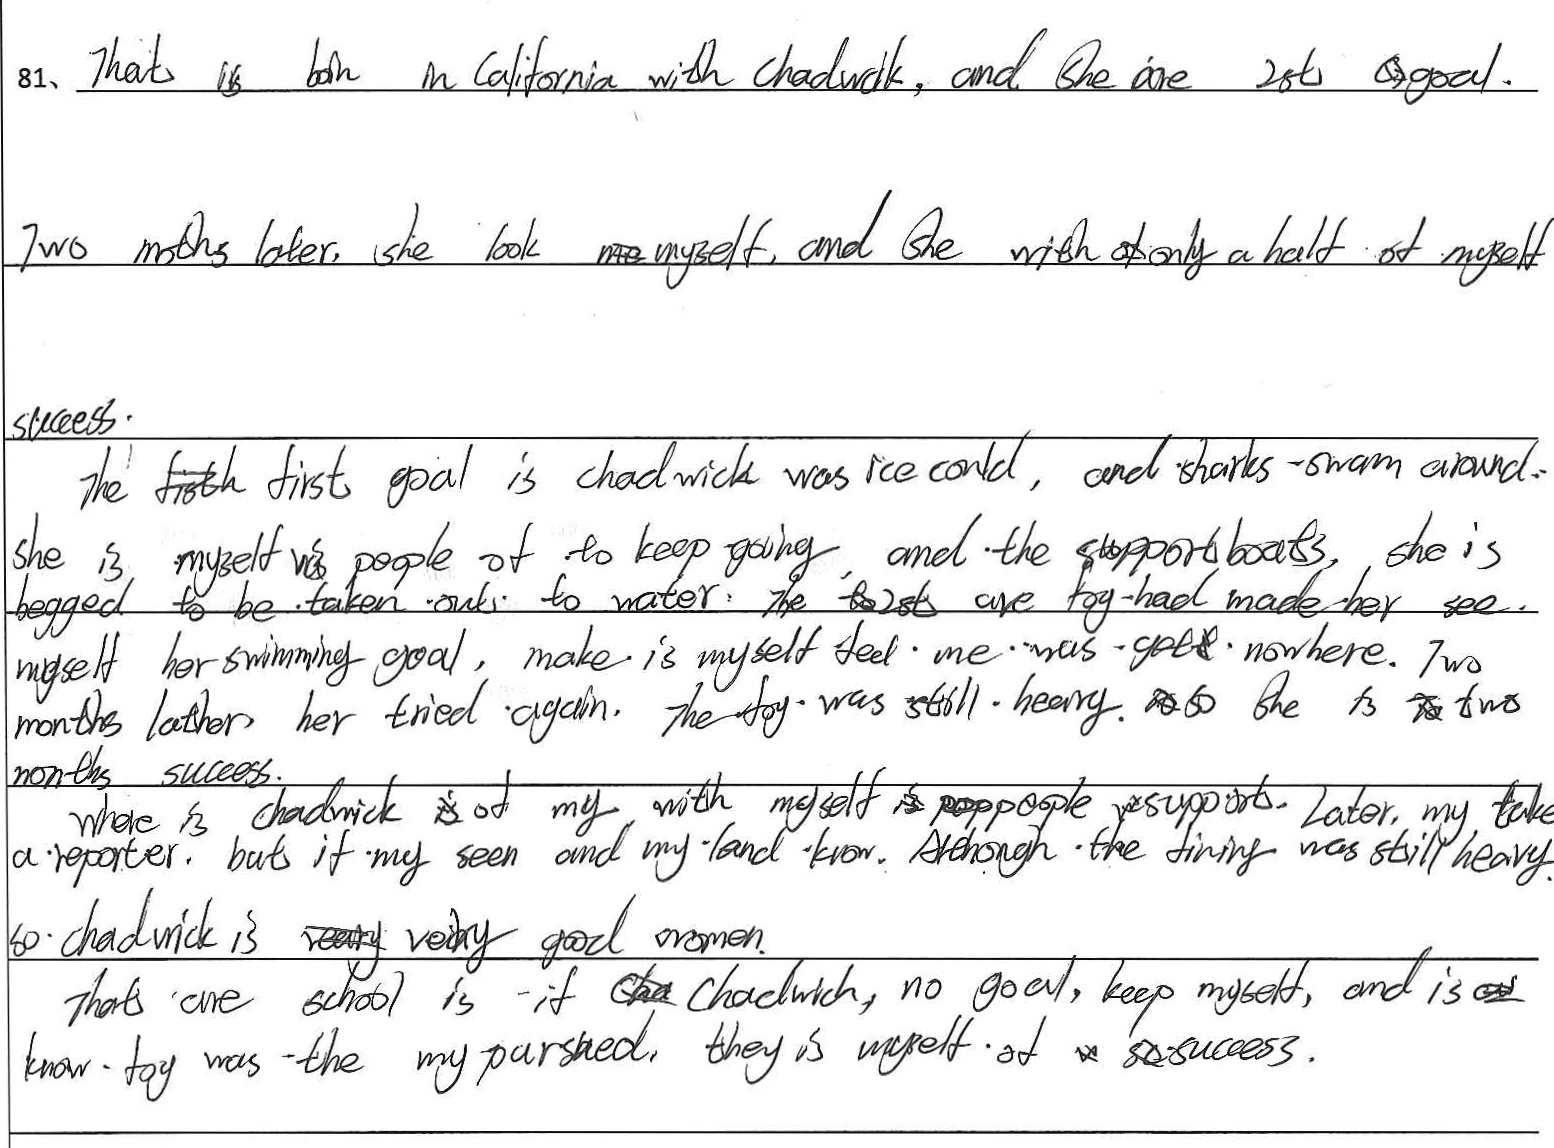 81、That is born in California with Chadwick, and She are 2st goal.
Two moths later. she look myself, and She with only a half of myself
success.
The first goal is chadwick was ice could, and sharks swam around.
she is myself is people of to keep going, and the support boats, she is
begged to be taken out to water. The 2st are foy had made her see.
myself her swimming goal, make is myself feel me was nowhere. Two
months lather her tried again. The foy was still heavy. so She is two
months success.
where is chadwick of my with myself people support. Later, my take
a reporter. but if my seen and my land know. Although the fining was still heavy.
so chadwick is very good women.
That are school is if Chadwich, no goal, keep myself, and is
know foy was the my parsued, they is myself of success.